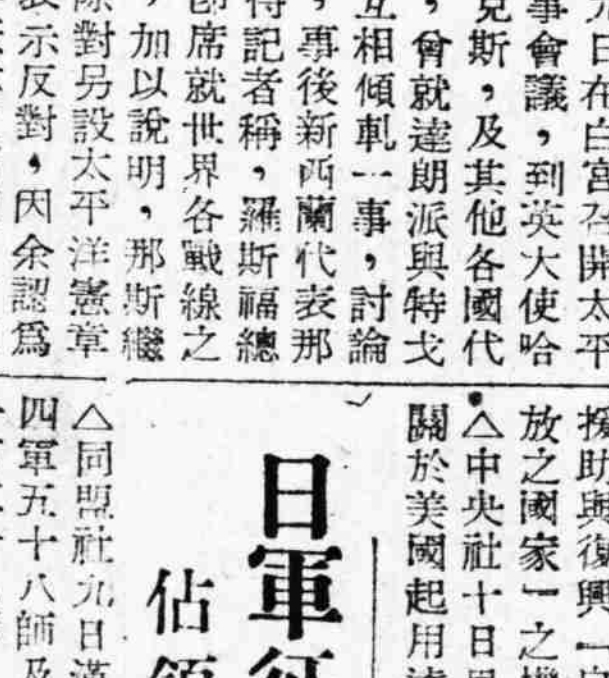 九日在白宮召開太平
事會議，到英大使哈
克斯，及其他各國代
，曾就達朗派與特戈
互相傾軋一事，討論
，事後新西蘭代表那
待記者稱，羅斯福總
卽席就世界各戰線之
，加以說明，那斯繼
際對另設太平洋憲章
表示反對，因余認爲
援助與復興
放之國家一之機
△中央社十日
關於美國起用達
日軍征
佔領
△同盟社九日漢
四軍五十八師及